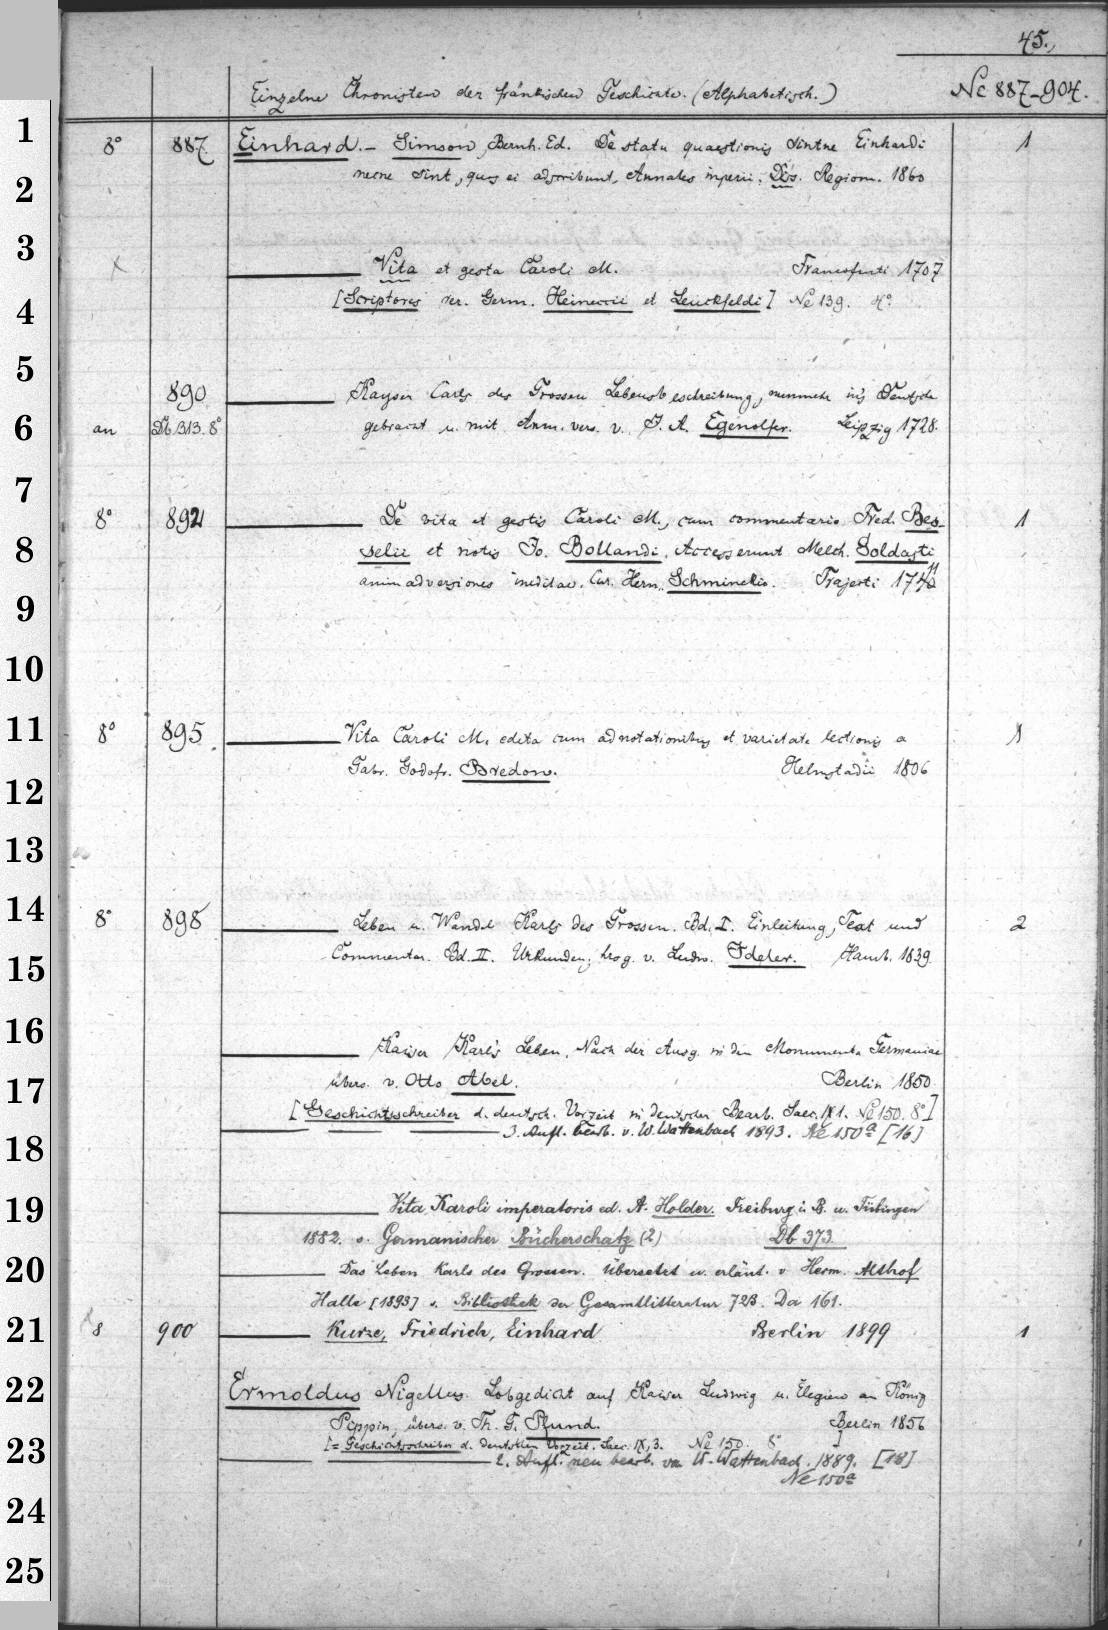 45.
Einzelne Chronisten der fränkischen Geschichte. (Alphabetisch.) Nc 887-904.
1 8° 887 Einhard. – Simson, Bernh. Ed. De statu quaestionis sintne Einhardi 1
2 necne sint, quos ei adscribunt, Annales imperii. Diss. Regiom. 1860
3 x Vita et gesta Caroli M. Francofurti 1707
4 [Scriptores rer. Germ. Heineccii et Leuckfeldi] Ne 139. 4°
5 890 Kayser Carls des Grossen Lebensbeschreibung, nunmehr ins Deutsche
6 an Db 313. 8° gebracht u. mit Anm. vers. v. J. A. Egenolfer. Leipzig 1728.
7
8° 892 De vita et gestis Caroli M., cum commentario Fred. Bes- 1
8 selii et notis Jo. Bollandi. Accesserunt Melch. Goldasti
animadversiones ineditae. Cur. Herm. Schminckio. Trajecti 1711
9
10
11 8° 895 Vita Caroli M. edita cum adnotationibus et varietate lectionis a 1
Gabr. Godofr. Bredow. Helmstadii 1806
12
13
14 8° 898 Leben u. Wandel Karls des Grossen. Bd. I. Einleitung, Text und 2
15 Commentar. Bd. II. Urkunden, hrsg. v. Ludw. Ideler. Hamb. 1839
16 Kaiser Karls Leben. Nach der Ausg. in den Monumenta Germaniae
17 übers. v. Otto Abel. Berlin 1850
[Geschichtsschreiber d. deutsch. Vorzeit in deutscher Bearb. Saec. IX 1. Ne 150. 8°]
18 3. Aufl. bearb. v. W. Wattenbach 1893. Ne 150a [16]
19 Vita Karoli imperatoris ed. A. Holder. Freiburg i. B. u. Tübingen
1882. s. Germanischer Bücherschatz (2) Db 373
20 Das Leben Karls des Grossen. Übersetzt u. erläut. v. Herm. Althof
Halle [1893] s. Bibliothek der Gesamtlitteratur 723. Da 161.
21 8 900 Kurze, Friedrich, Einhard Berlin 1899 1
22 Ermoldus Nigellus. Lobgedicht auf Kaiser Ludwig u. Elegien an König
Pippin, übers. v. Th. G. Pfund. Berlin 1856
23 [= Geschichtsschreiber d. deutschen Vorzeit. Saec. IX, 3. Ne 150. 8°]
2. Aufl. neu bearb. von W. Wattenbach. 1889. [18]
Ne 150a
24
25